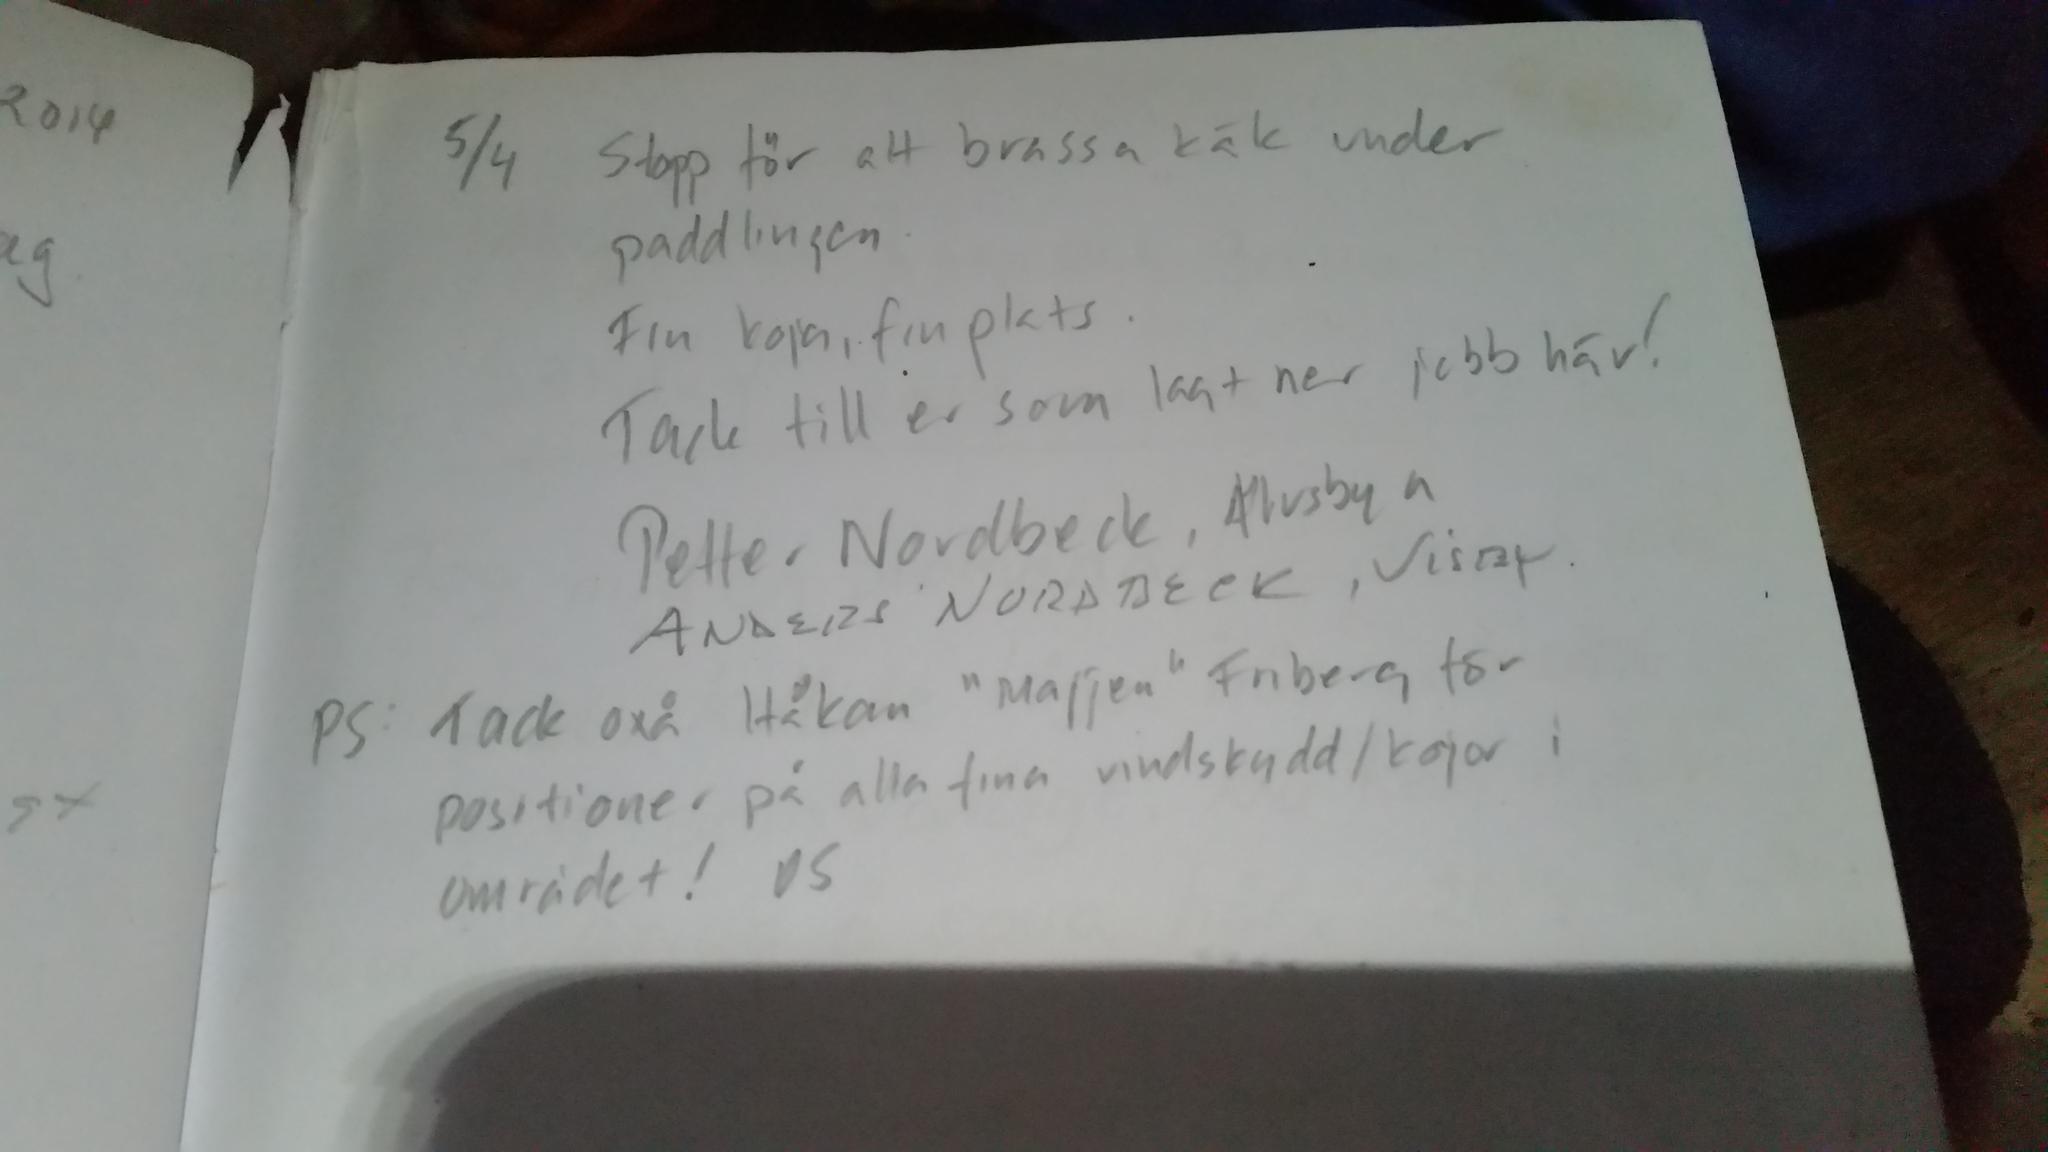 2014
ag
5/4 Stopp för att brassa käk under
paddlingen.
Fin koja, fin plats.
Tack till er som lagt ner jobb här!
Petter Nordbeck, Älvsbyn
ANDERS NORDBECK, VISBY.
PS: Tack oxå Håkan "Majjen" Friberg för
positioner på alla fina vindskydd/kojor i
området! DS